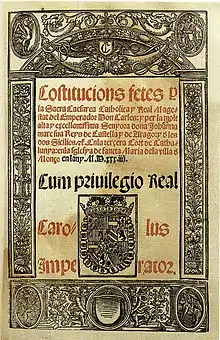 Costitucions fetes p
la Sacra Cesarea Catholica y Real Mages
tat del Emperador Don Carlens: y per la molt
alta y excellentissima Senyora dona Johanna
mare sua Reys de Castella y de Arago: y de les
dos Sicilies. &c. En la tercera Cort de Catha
lunya en la sglesya de sancta Maria dela vila d
Monço en lany M.D.xxx.iij.
Cum privilegio Real
Caro- lus
Impe- rator.